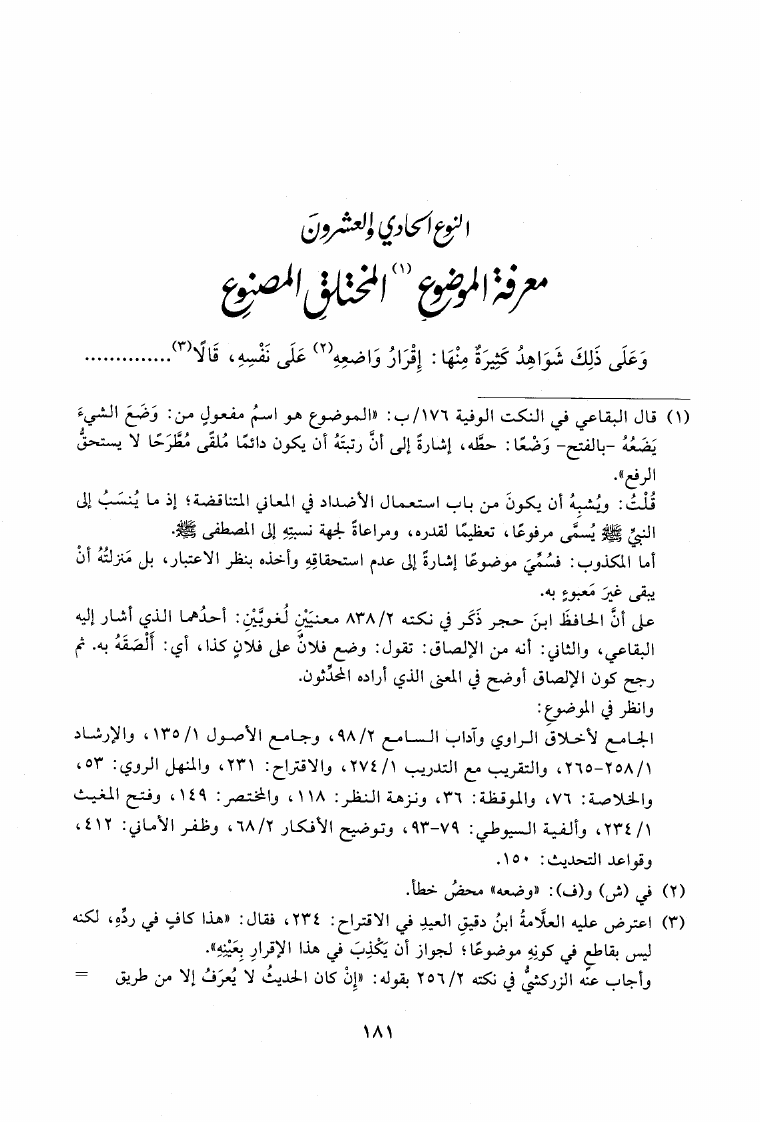 النوع الحادي والعشرونَ
معرفة الموضوع (١) المختلق المصنوع
وَعَلَى ذَلِكَ شَوَاهِدُ كَثِيرَةٌ مِنْهَا: إِقْرَارُ وَاضعِهِ(٢) عَلَى نَفْسِهِ، قَالَا(٣)..............
(١) قال البقاعي في النكت الوفية ١٧٦/ب: «الموضوع هو اسمُ مفعولٍ من: وَضَعَ الشيءَ
يَضَعُهُ -بالفتح- وَضْعًا: حطَّه، إشارةً إلى أنَّ رتبتَهُ أن يكون دائمًا مُلقًى مُطَّرَحًا لا يستحقُّ
الرفع».
قُلْتُ: ويُشبِهُ أن يكونَ من باب استعمال الأضداد في المعاني المتناقضة؛ إذ ما يُنسَبُ إلى
النبيِّ ﷺ يُسمَّى مرفوعًا، تعظيمًا لقدره، ومراعاةً لجهة نسبتِهِ إلى المصطفى ﷺ.
أما المكذوب: فسُمِّيَ موضوعًا إشارةً إلى عدم استحقاقِهِ وأخذه بنظر الاعتبار، بل منزلتُهُ أنْ
يبقى غيرَ مَعبوءٍ به.
على أنَّ الحافظَ ابنَ حجر ذَكَر في نكته ٨٣٨/٢ معنيَيْنِ لُغويَّيْنِ: أحدُهما الذي أشار إليه
البقاعي، والثاني: أنه من الإلصاق: تقول: وضع فلانٌ على فلانٍ كذا، أي: أَلْصَقَهُ به. ثم
رجح كون الإلصاق أوضح في المعنى الذي أراده المحدِّثون.
وانظر في الموضوع:
الجامع لأخلاق الراوي وآداب السامع ٩٨/٢، وجامع الأصول ١٣٥/١، والإرشاد
٢٥٨/١-٢٦٥، والتقريب مع التدريب ٢٧٤/١، والاقتراح: ٢٣١، والمنهل الروي: ٥٣،
والخلاصة: ٧٦، والموقظة: ٣٦، ونزهة النظر: ١١٨، والمختصر: ١٤٩، وفتح المغيث
٢٣٤/١، وألفية السيوطي: ٧٩-٩٣، وتوضيح الأفكار ٦٨/٢، وظفر الأماني: ٤١٢،
وقواعد التحديث: ١٥٠.
(٢) في (ش) و(ف): «وضعه» محضُ خطأ.
(٣) اعترض عليه العلَّامةُ ابنُ دقيقِ العيدِ في الاقتراح: ٢٣٤، فقال: «هذا كافٍ في ردِّهِ، لكنه
ليس بقاطعٍ في كونِهِ موضوعًا؛ لجواز أن يَكْذِبَ في هذا الإقرارِ بِعَيْنِهِ».
وأجاب عنه الزركشيُّ في نكته ٢٥٦/٢ بقوله: «إنْ كان الحديثُ لا يُعرَفُ إلا من طريق =
١٨١